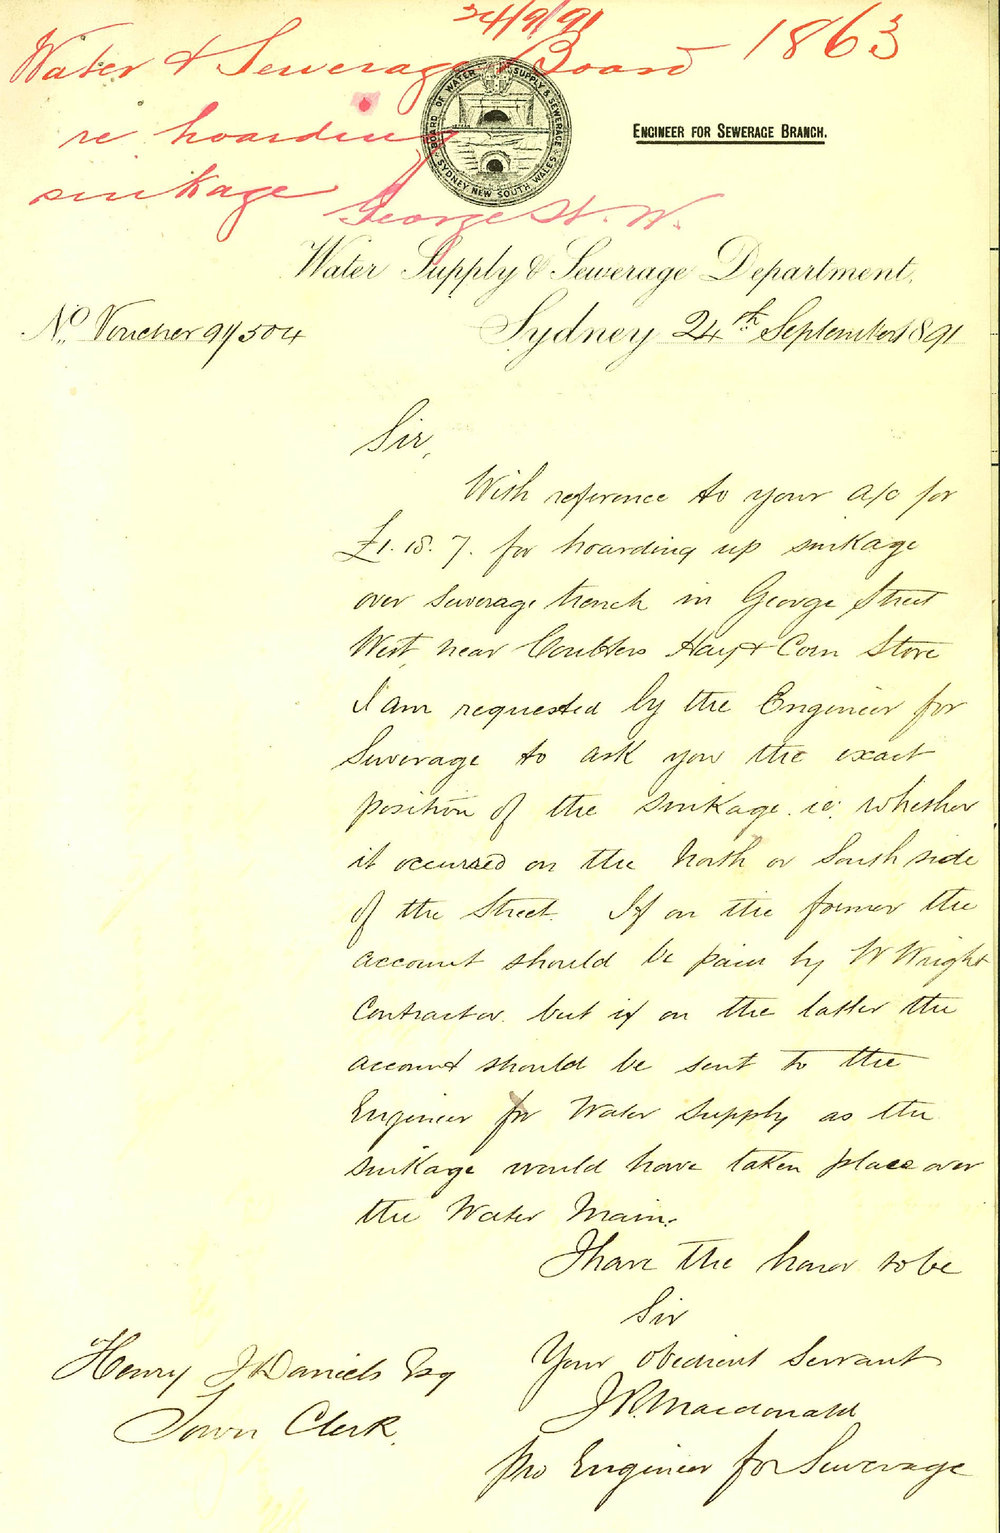 24/9/91
Water & Sewerage Board 1863
re hoarding
sinkage George St. W.
BOARD OF WATER SUPPLY & SEWERAGE
SYDNEY NEW SOUTH WALES
ENGINEER FOR SEWERAGE BRANCH.
Water Supply & Sewerage Department,
No. Voucher 91/504
Sydney 24th September 1891
Sir,
With reference to your a/c for
£1. 18. 7. for hoarding up sinkage
over sewerage trench in George Street
West, near Coulters Hay & Corn Store
I am requested by the Engineer for
Sewerage to ask you the exact
position of the sinkage. ie: whether
it occurred on the North or South side
of the Street. If on the former the
account should be paid by W Wright
Contractor. but if on the latter the
account should be sent to the
Engineer for Water Supply as the
sinkage would have taken place over
the Water Main.
I have the honor to be
Sir
Your obedient Servant
J R. Macdonald
pro Engineer for Sewerage
Henry J Daniels Esq
Town Clerk.